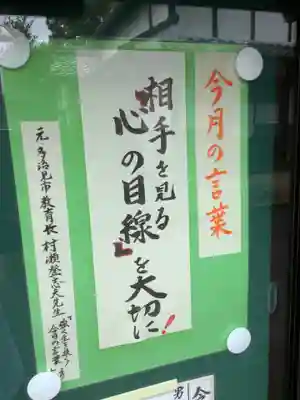 今月の言葉
相手を見る
『心の目線』を大切に!
元 多治見市教育長 村瀬登志夫先生
今月の言葉
今
男